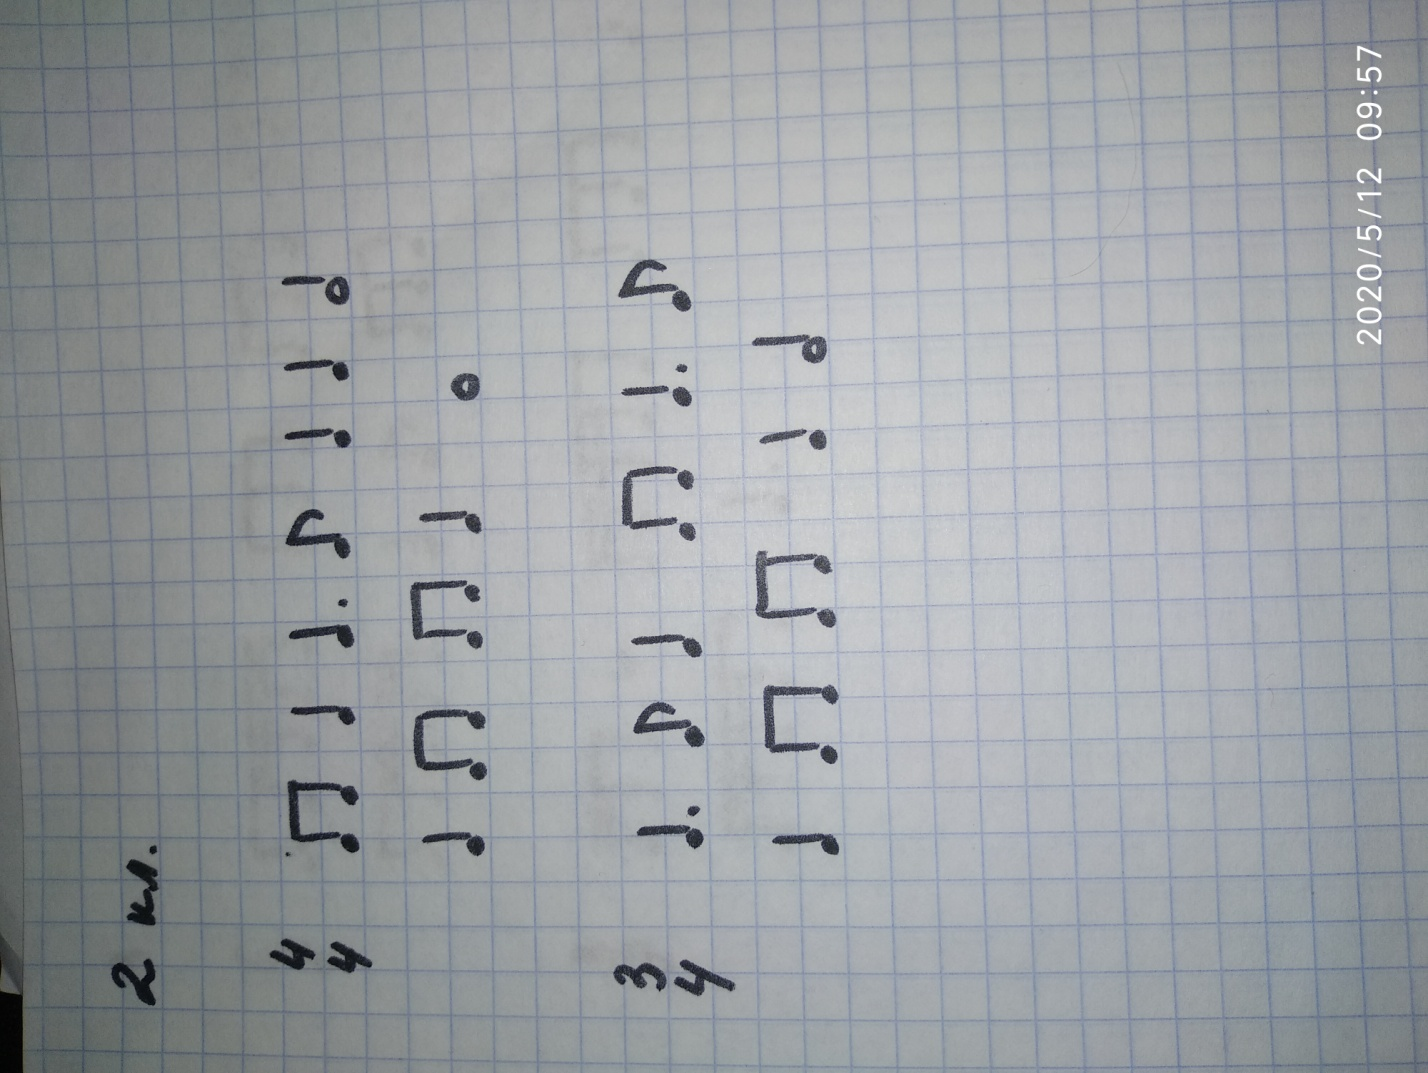 2 кл.
4
4
3
4
2020/5/12 09:57